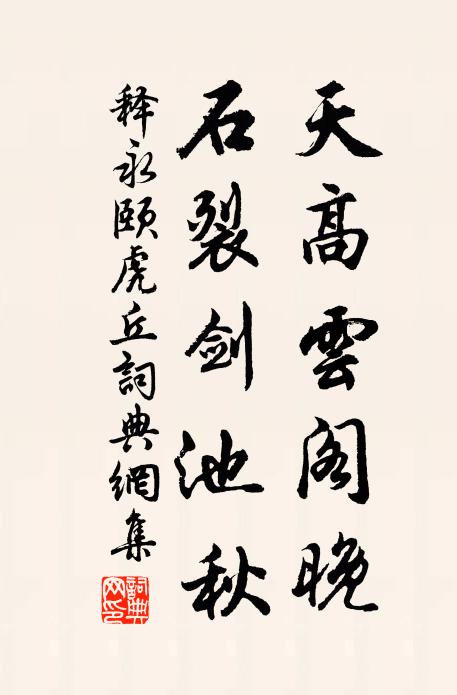 天高雲阁晚
石裂剑池秋
释永颐虎丘詞典網集
詞典网印